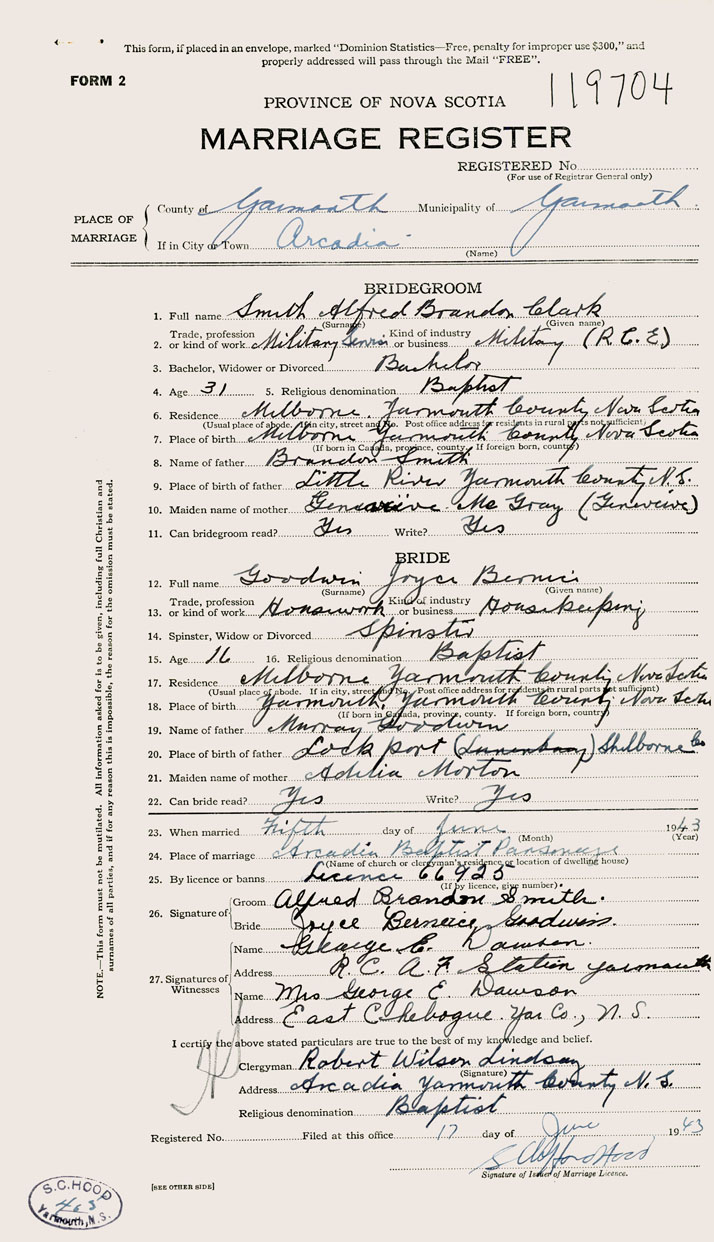 This form, if placed in an envelope, marked "Dominion Statistics—Free, penalty for improper use $300," and
properly addressed will pass through the Mail "FREE".
FORM 2
PROVINCE OF NOVA SCOTIA
119704
MARRIAGE REGISTER
REGISTERED No.
(For use of Registrar General only)
PLACE OF MARRIAGE
County of Yarmouth Municipality of Yarmouth
If in City or Town Arcadia
(Name)
BRIDEGROOM
1. Full name Smith Alfred Brandon Clark
(Surname) (Given name)
Trade, profession Kind of industry
2. or kind of work Military or business Military (R.C.E)
3. Bachelor, Widower or Divorced Bachelor
4. Age 31 5. Religious denomination Baptist
6. Residence Melborne, Yarmouth County Nova Scotia
(Usual place of abode. If in city, street and No. Post office address for residents in rural parts not sufficient)
7. Place of birth Melborne Yarmouth County Nova Scotia
(If born in Canada, province, county. If foreign born, country)
8. Name of father Brandon Smith
9. Place of birth of father Little River Yarmouth County N.S.
10. Maiden name of mother Mc Gray (Genevieve)
11. Can bridegroom read? Yes Write? Yes
BRIDE
12. Full name Goodwin Joyce Bernice
(Surname) (Given name)
Trade, profession Kind of industry
13. or kind of work Housework or business Housekeeping
14. Spinster, Widow or Divorced Spinster
15. Age 16 16. Religious denomination Baptist
17. Residence Melborne Yarmouth County Nova Scotia
(Usual place of abode. If in city, street and No. Post office address for residents in rural parts not sufficient)
18. Place of birth Yarmouth, Yarmouth County Nova Scotia
(If born in Canada, province, county. If foreign born, country)
19. Name of father Murray Goodwin
20. Place of birth of father Lockport (Lunenburg) Shelborne Co
21. Maiden name of mother Adelia Morton
22. Can bride read? Yes Write? Yes
23. When married Fifth day of June 1943
(Month) (Year)
24. Place of marriage Arcadia Baptist Parsonage
(Name of church or clergyman's residence or location of dwelling house)
25. By licence or banns Licence 66925
(If by licence, give number)
26. Signature of
Groom Alfred Brandon Smith.
Bride Joyce Bernice Goodwin.
27. Signatures of Witnesses
Name George E. Dawson.
Address R.C.A.F. Station Yarmouth
Name Mrs George E. Dawson
Address East Chebogue. Yar Co., N.S.
I certify the above stated particulars are true to the best of my knowledge and belief.
Clergyman Robert Wilson Lindsay
(Signature)
Address Arcadia Yarmouth County N.S.
Religious denomination Baptist
Registered No. Filed at this office 17 day of June 1943
S. Clifford Hood
Signature of Issuer of Marriage Licence.
[SEE OTHER SIDE]
S.C. HOOD
463
Yarmouth, N.S.
NOTE.—This form must not be mutilated. All information asked for is to be given, including full Christian and
surnames of all parties, and if for any reason this is impossible, the reason for the omission must be stated.